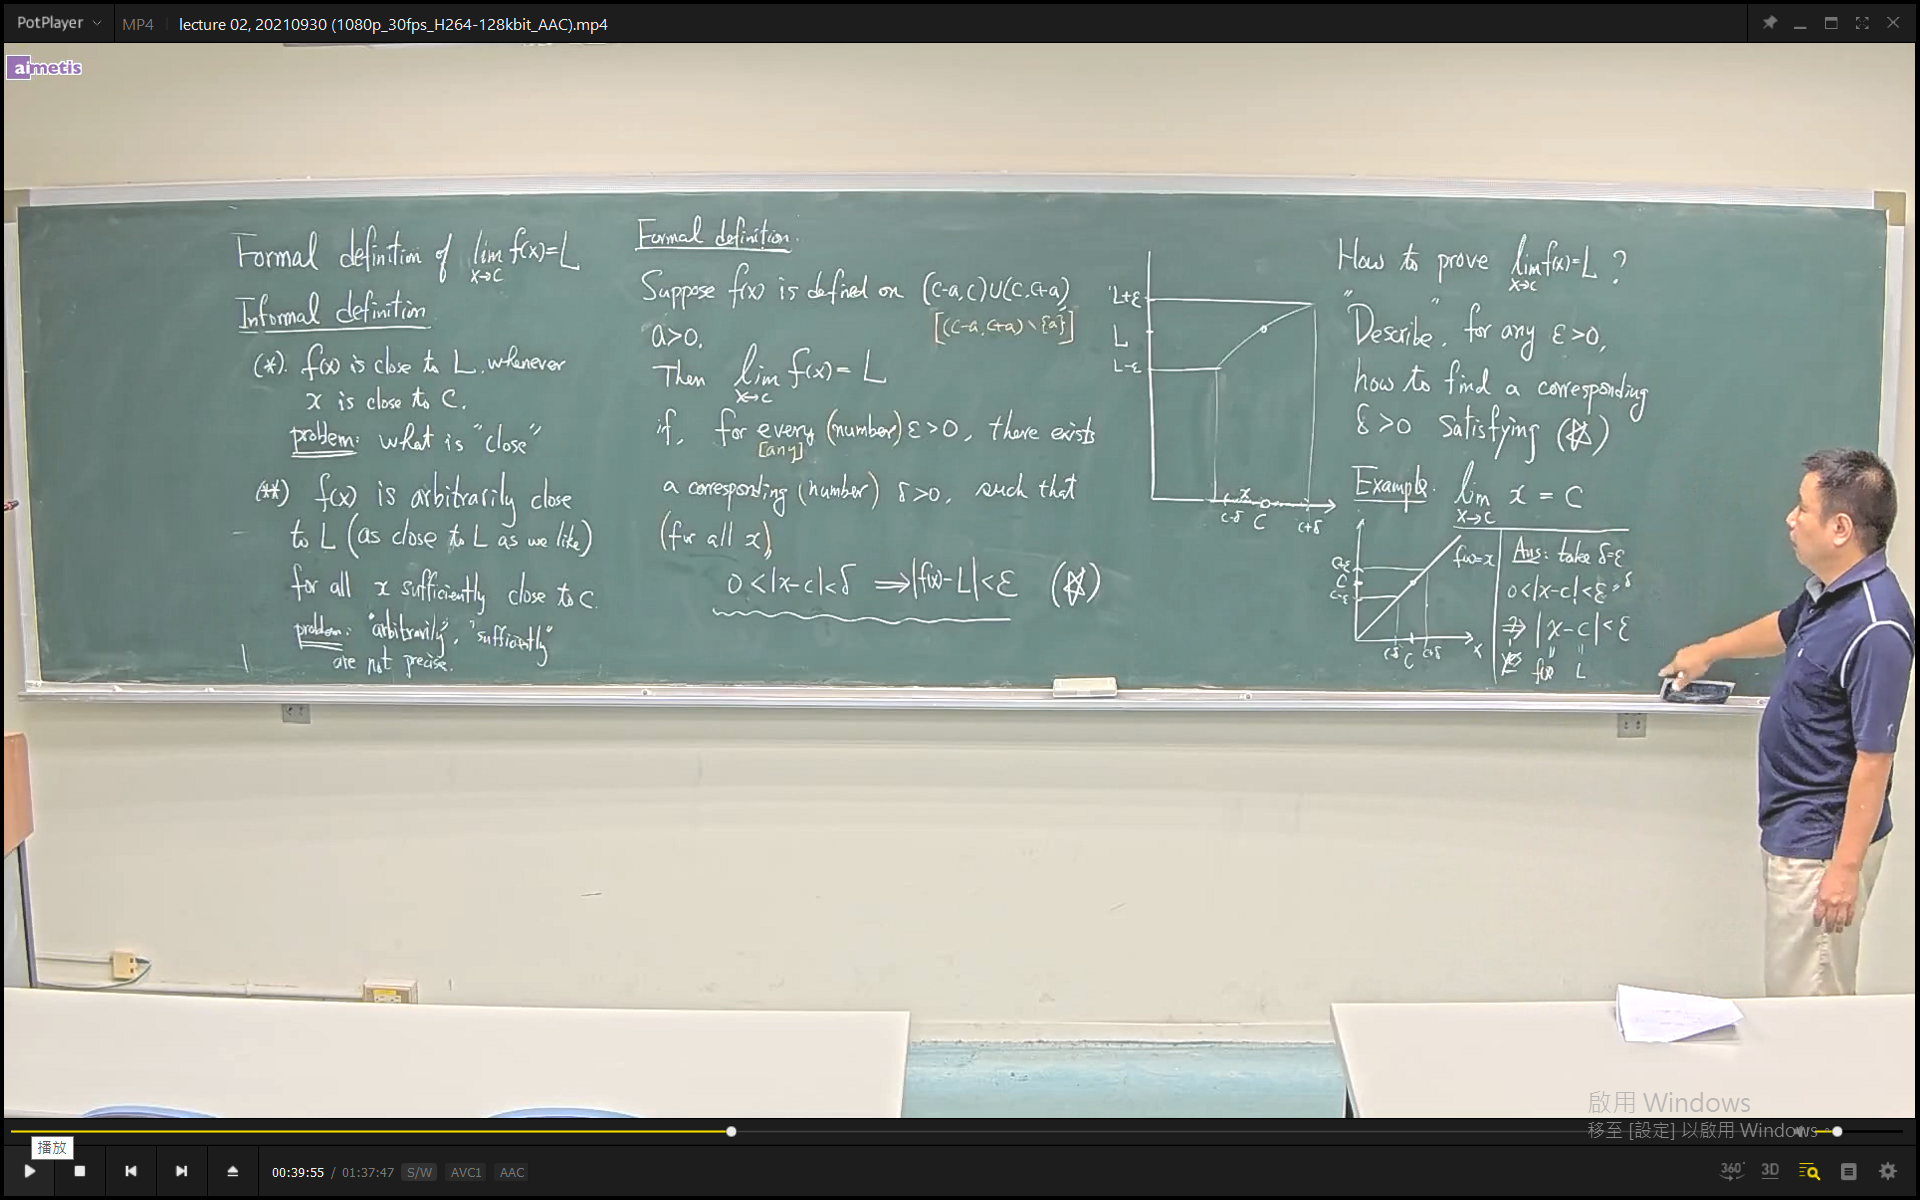 PotPlayer
MP4
lecture 02, 20210930 (1080p_30fps_H264-128kbit_AAC).mp4
aimetis
Formal definition of lim f(x)=L
x→c
Informal definition
(*). f(x) is close to L whenever
x is close to c.
problem: what is "close"
(**) f(x) is arbitrarily close
to L (as close to L as we like)
for all x sufficiently close to c.
problem: "arbitrarily", "sufficiently"
are not precise.
Formal definition.
Suppose f(x) is defined on (c-a,c)∪(c,c+a)
[(c-a,c+a)∖{a}]
a>0.
Then lim f(x)= L
x→c
if, for every (number) ε>0, there exists
[any]
a corresponding (number) δ>0, such that
(for all x),
0<|x-c|<δ ⇒|f(x)-L|<ε (☆)
L+ε
L
L-ε
x
c-δ c c+δ
How to prove lim f(x)=L ?
x→c
"Describe", for any ε>0,
how to find a corresponding
δ>0 satisfying (☆)
Example. lim x = c
x→c
f(x)=x
c+ε
c
c-ε
c-δ c c+δ x
Ans: take δ=ε
0<|x-c|<ε=δ
?
⇒ |x-c|<ε
yes f(x) L
啟用 Windows
移至 [設定] 以啟用 Windows
播放
00:39:55 / 01:37:47 S/W AVC1 AAC
360°
3D